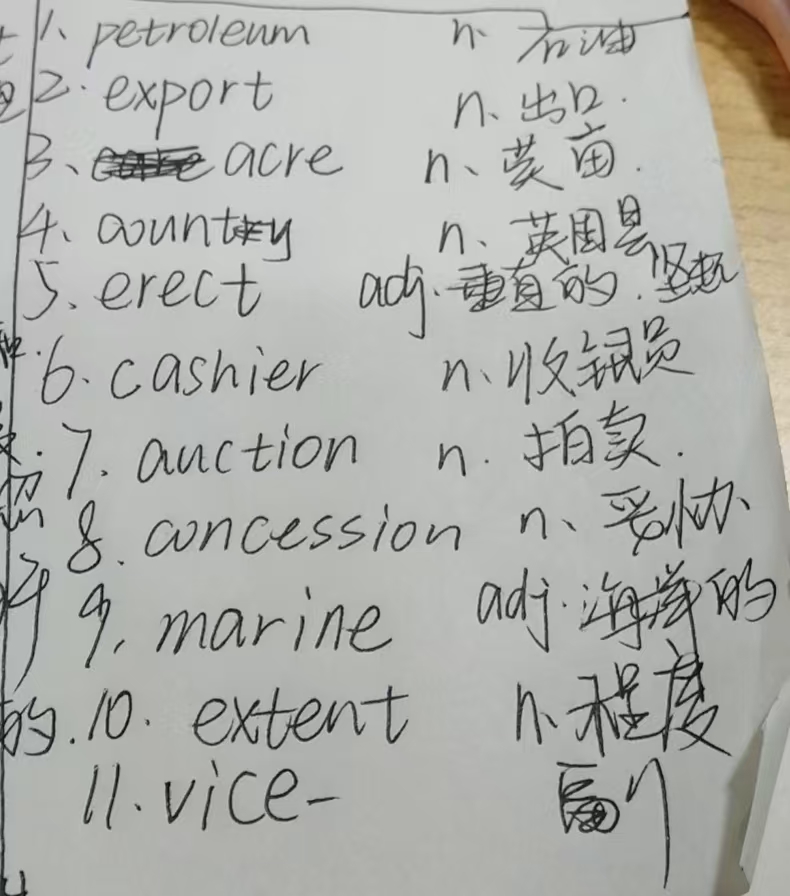 1、petroleum n. 石油
2. export n、出口.
3、acre n、英亩.
4、county n、英国县
5、erect adj.垂直的.竖起
6. cashier n、收银员
7. auction n. 拍卖.
8. concession n、妥协
9. marine adj.海洋的
的.10. extent n.程度
11.vice- 副